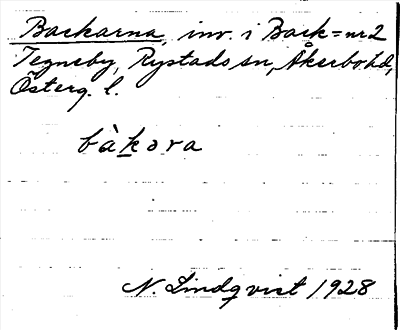 Backarna, inv. i Back = nr 2
Tegneby, Rystads sn, Åkerbo hd,
Österg. l.
bàkɔra
N. Lindqvist 1928